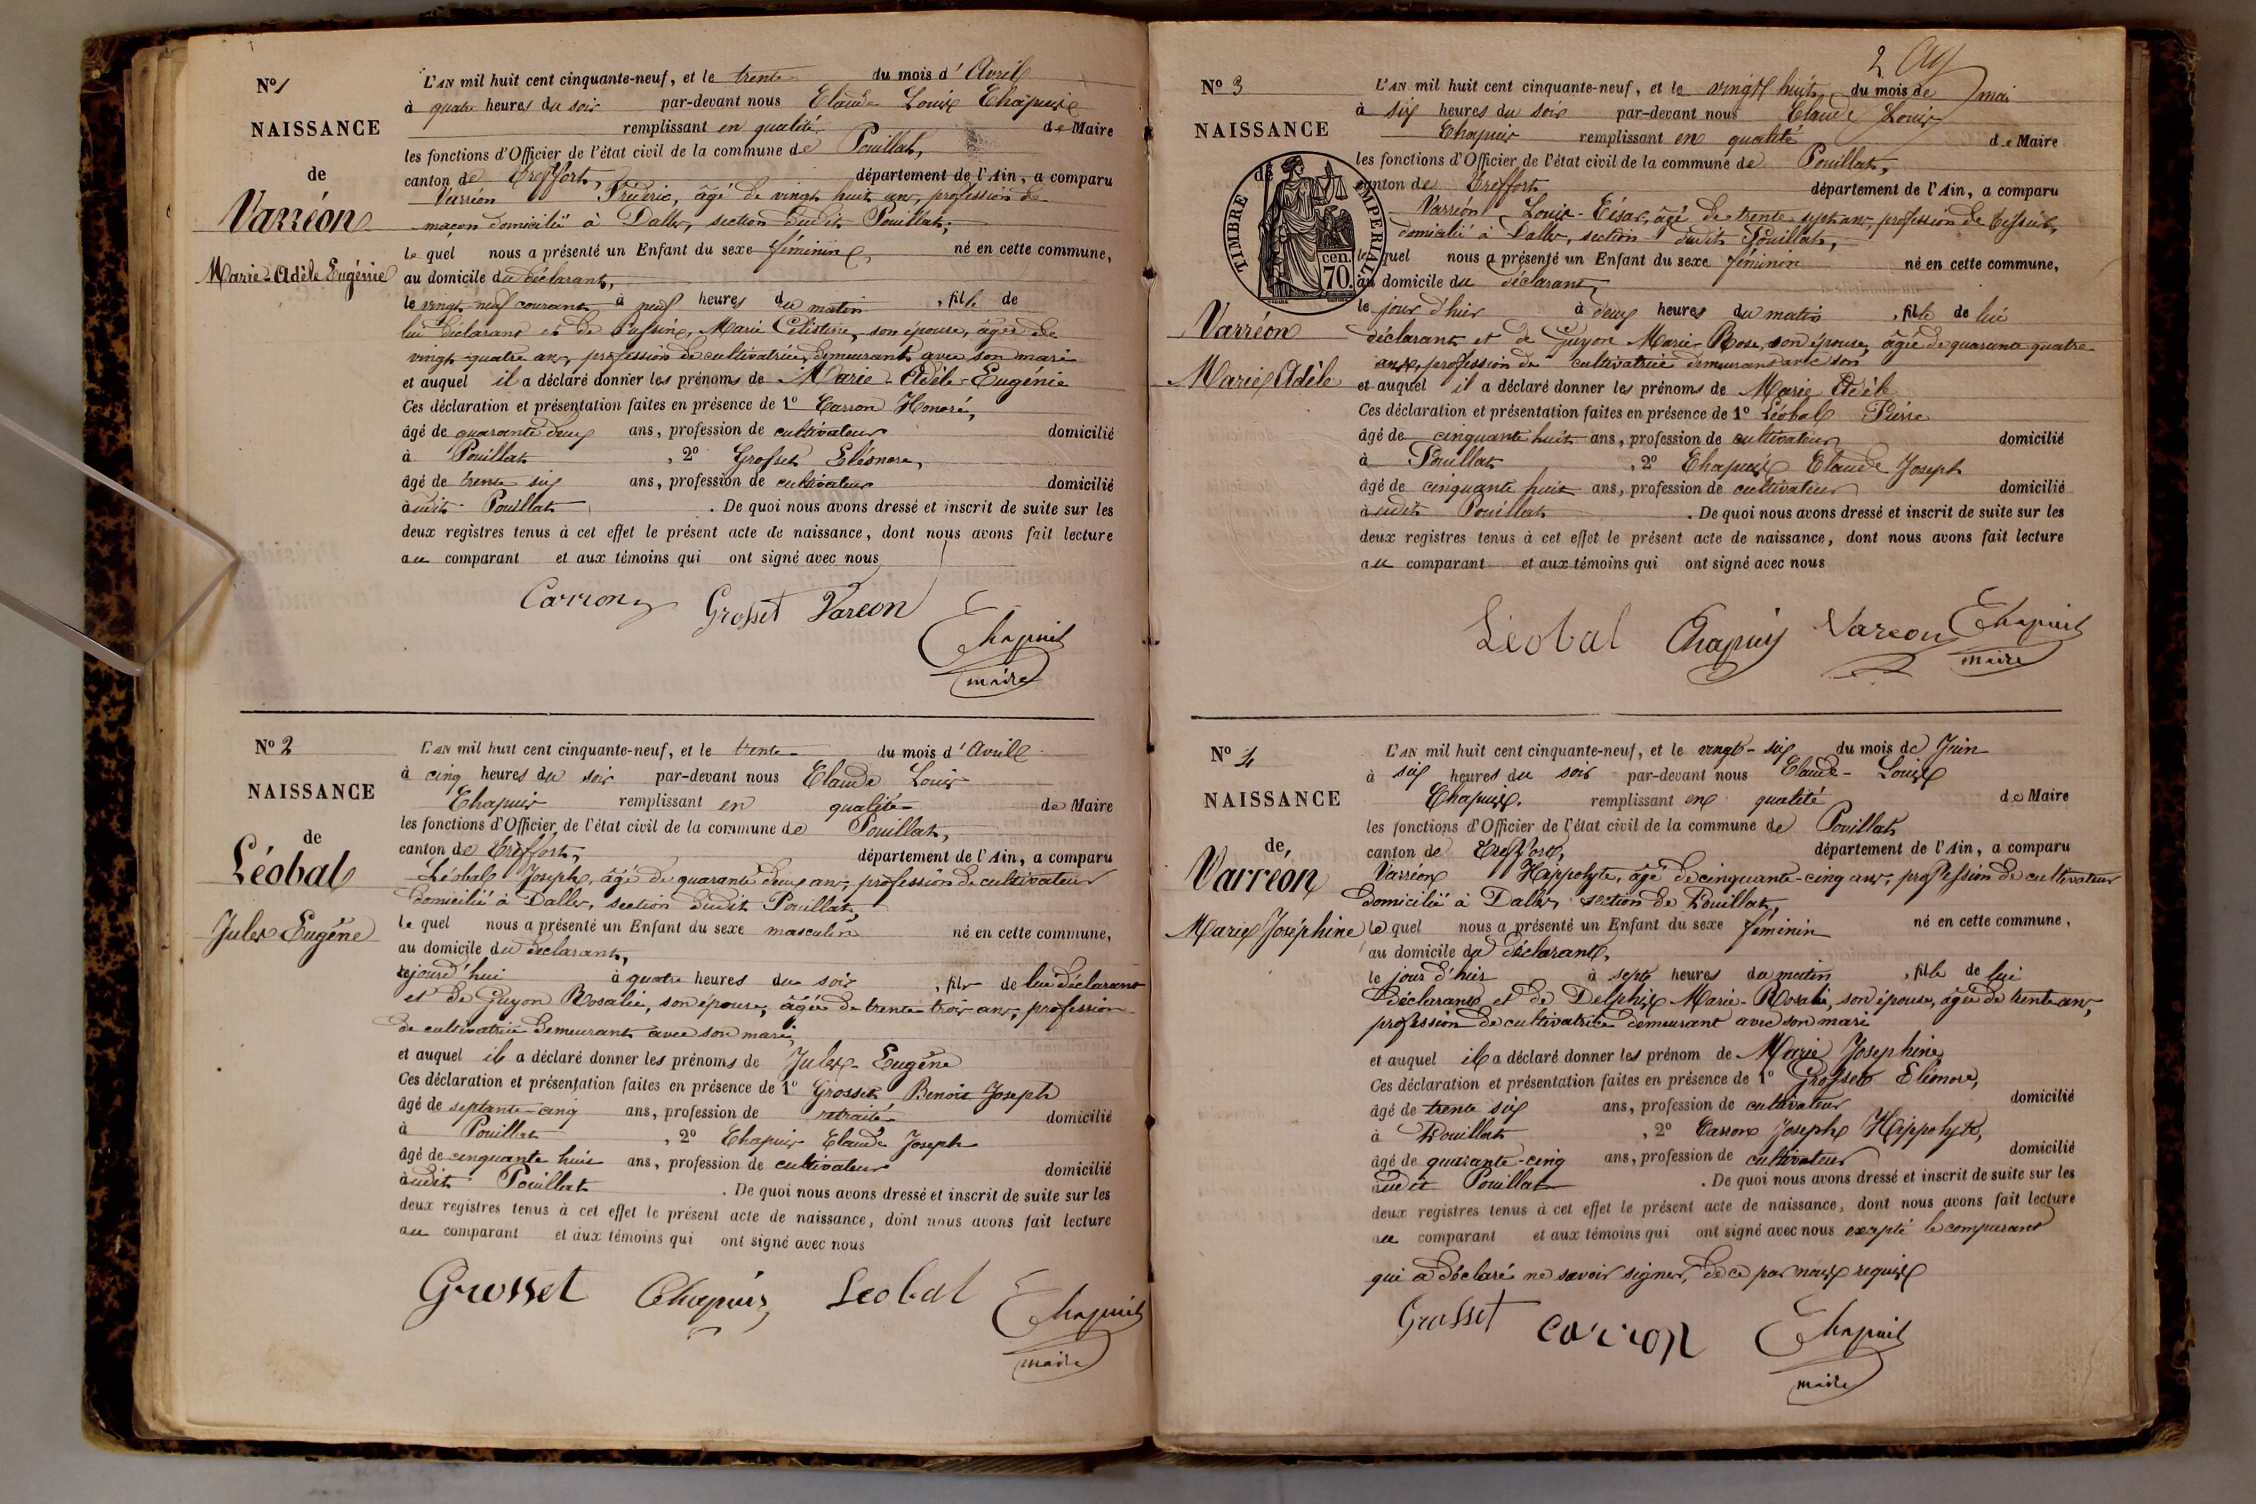 N° 1
NAISSANCE
de
Varréon
Marie-Adèle Eugénie
L'AN mil huit cent cinquante-neuf, et le trente du mois d'Avril
à quatre heures du soir par-devant nous Claude Louis Chapuis
remplissant en qualité de Maire
les fonctions d'Officier de l'état civil de la commune de Pouillat,
canton de Treffort, département de l'Ain, a comparu
Varréon Frédéric, âgé de vingt huit ans, profession de
maçon domicilié à Dalles, section dudit Pouillat,
lequel nous a présenté un Enfant du sexe féminin, né en cette commune,
au domicile du déclarant,
le vingt-neuf courant à neuf heures du matin, fille de
lui déclarant et de Marie Célistine, son épouse, âgée de
vingt quatre ans, profession de cultivatrice, demeurant avec son mari
et auquel il a déclaré donner les prénoms de Marie-Adèle-Eugénie
Ces déclaration et présentation faites en présence de 1° Carron Honoré,
âgé de quarante deux ans, profession de cultivateur domicilié
à Pouillat, 2° Grosset Eléonore,
âgé de trente six ans, profession de cultivateur domicilié
audit Pouillat. De quoi nous avons dressé et inscrit de suite sur les
deux registres tenus à cet effet le présent acte de naissance, dont nous avons fait lecture
au comparant et aux témoins qui ont signé avec nous
Carron Grosset Vareon Chapuis
maire
N° 2
NAISSANCE
de
Léobal
Jules Eugène
L'AN mil huit cent cinquante-neuf, et le trente du mois d'Avril
à cinq heures du soir par-devant nous Claude Louis
Chapuis remplissant en qualité de Maire
les fonctions d'Officier de l'état civil de la commune de Pouillat,
canton de Treffort, département de l'Ain, a comparu
Léobal Joseph, âgé de quarante deux ans, profession de cultivateur
domicilié à Dalles, section dudit Pouillat,
lequel nous a présenté un Enfant du sexe masculin né en cette commune,
au domicile du déclarant,
cejourd'hui à quatre heures du soir, fils de lui déclarant
et de Guyon Rosalie, son épouse, âgée de trente trois ans, profession
de cultivatrice demeurant avec son mari,
et auquel il a déclaré donner les prénoms de Jules-Eugène
Ces déclaration et présentation faites en présence de 1° Grosset Benoit Joseph
âgé de septante-cinq ans, profession de retraité domicilié
à Pouillat, 2° Chapuis Claude Joseph
âgé de cinquante huit ans, profession de cultivateur domicilié
audit Pouillat. De quoi nous avons dressé et inscrit de suite sur les
deux registres tenus à cet effet le présent acte de naissance, dont nous avons fait lecture
au comparant et aux témoins qui ont signé avec nous
Grosset Chapuis Leobal Chapuis
maire
2
N° 3
NAISSANCE
TIMBRE IMPERIAL
70 cen.
Varréon
Marie Adèle
L'AN mil huit cent cinquante-neuf, et le vingt huit du mois de mai
à six heures du soir par-devant nous Claude Louis
Chapuis remplissant en qualité de Maire
les fonctions d'Officier de l'état civil de la commune de Pouillat,
canton de Treffort département de l'Ain, a comparu
Varréon Louis-César, âgé de trente sept ans, profession de tisseur,
domicilié à Dalles, section dudit Pouillat,
lequel nous a présenté un Enfant du sexe féminin né en cette commune,
au domicile du déclarant,
le jour d'hier à deux heures du matin, fille de lui
déclarant et de Guyon Marie-Rose, son épouse, âgée de quarante quatre
ans, profession de cultivatrice demeurant avec son
et auquel il a déclaré donner les prénoms de Marie Adèle
Ces déclaration et présentation faites en présence de 1° Léobal Pierre
âgé de cinquante huit ans, profession de cultivateur domicilié
à Pouillat, 2° Chapuis Claude Joseph
âgé de cinquante huit ans, profession de cultivateur domicilié
audit Pouillat. De quoi nous avons dressé et inscrit de suite sur les
deux registres tenus à cet effet le présent acte de naissance, dont nous avons fait lecture
au comparant et aux témoins qui ont signé avec nous
Léobal Chapuis Vareon Chapuis
maire
N° 4
NAISSANCE
de,
Varréon
Marie Joséphine
L'AN mil huit cent cinquante-neuf, et le vingt-six du mois de Juin
à six heures du soir par-devant nous Claude-Louis
Chapuis. remplissant en qualité de Maire
les fonctions d'Officier de l'état civil de la commune de Pouillat
canton de Treffort, département de l'Ain, a comparu
Varréon Hippolyte, âgé de cinquante-cinq ans, profession de cultivateur
domicilié à Dalles section de Pouillat,
lequel nous a présenté un Enfant du sexe féminin né en cette commune,
au domicile du déclarant,
le jour d'hier à sept heures du matin, fille de lui
déclarant et de Delphix Marie-Rosalie, son épouse, âgée de trente ans,
profession de cultivatrice demeurant avec son mari
et auquel il a déclaré donner les prénom de Marie Josephine
Ces déclaration et présentation faites en présence de 1° Grosset Eléonore,
âgé de trente six ans, profession de cultivateur domicilié
à Pouillat, 2° Carron Joseph Hippolyte,
âgé de quarante-cinq ans, profession de cultivateur domicilié
audit Pouillat. De quoi nous avons dressé et inscrit de suite sur les
deux registres tenus à cet effet le présent acte de naissance, dont nous avons fait lecture
au comparant et aux témoins qui ont signé avec nous excepté le comparant
qui a déclaré ne savoir signer, de ce par nous requis
Grosset carron Chapuis
maire